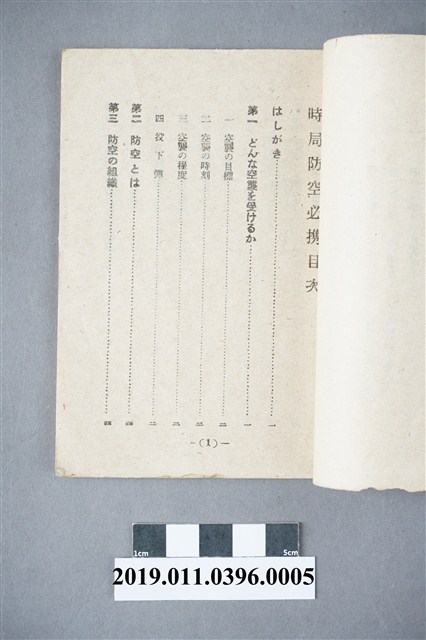 時局防空必携目次
はしがき……………………一
第一 どんな空襲を受けるか……………………一
一 空襲の目標……………………二
二 空襲の時刻……………………二
三 空襲の程度……………………二
四 投下弾……………………二
第二 防空とは……………………四
第三 防空の組織……………………四
—(1)—
1cm 5cm
2019.011.0396.0005